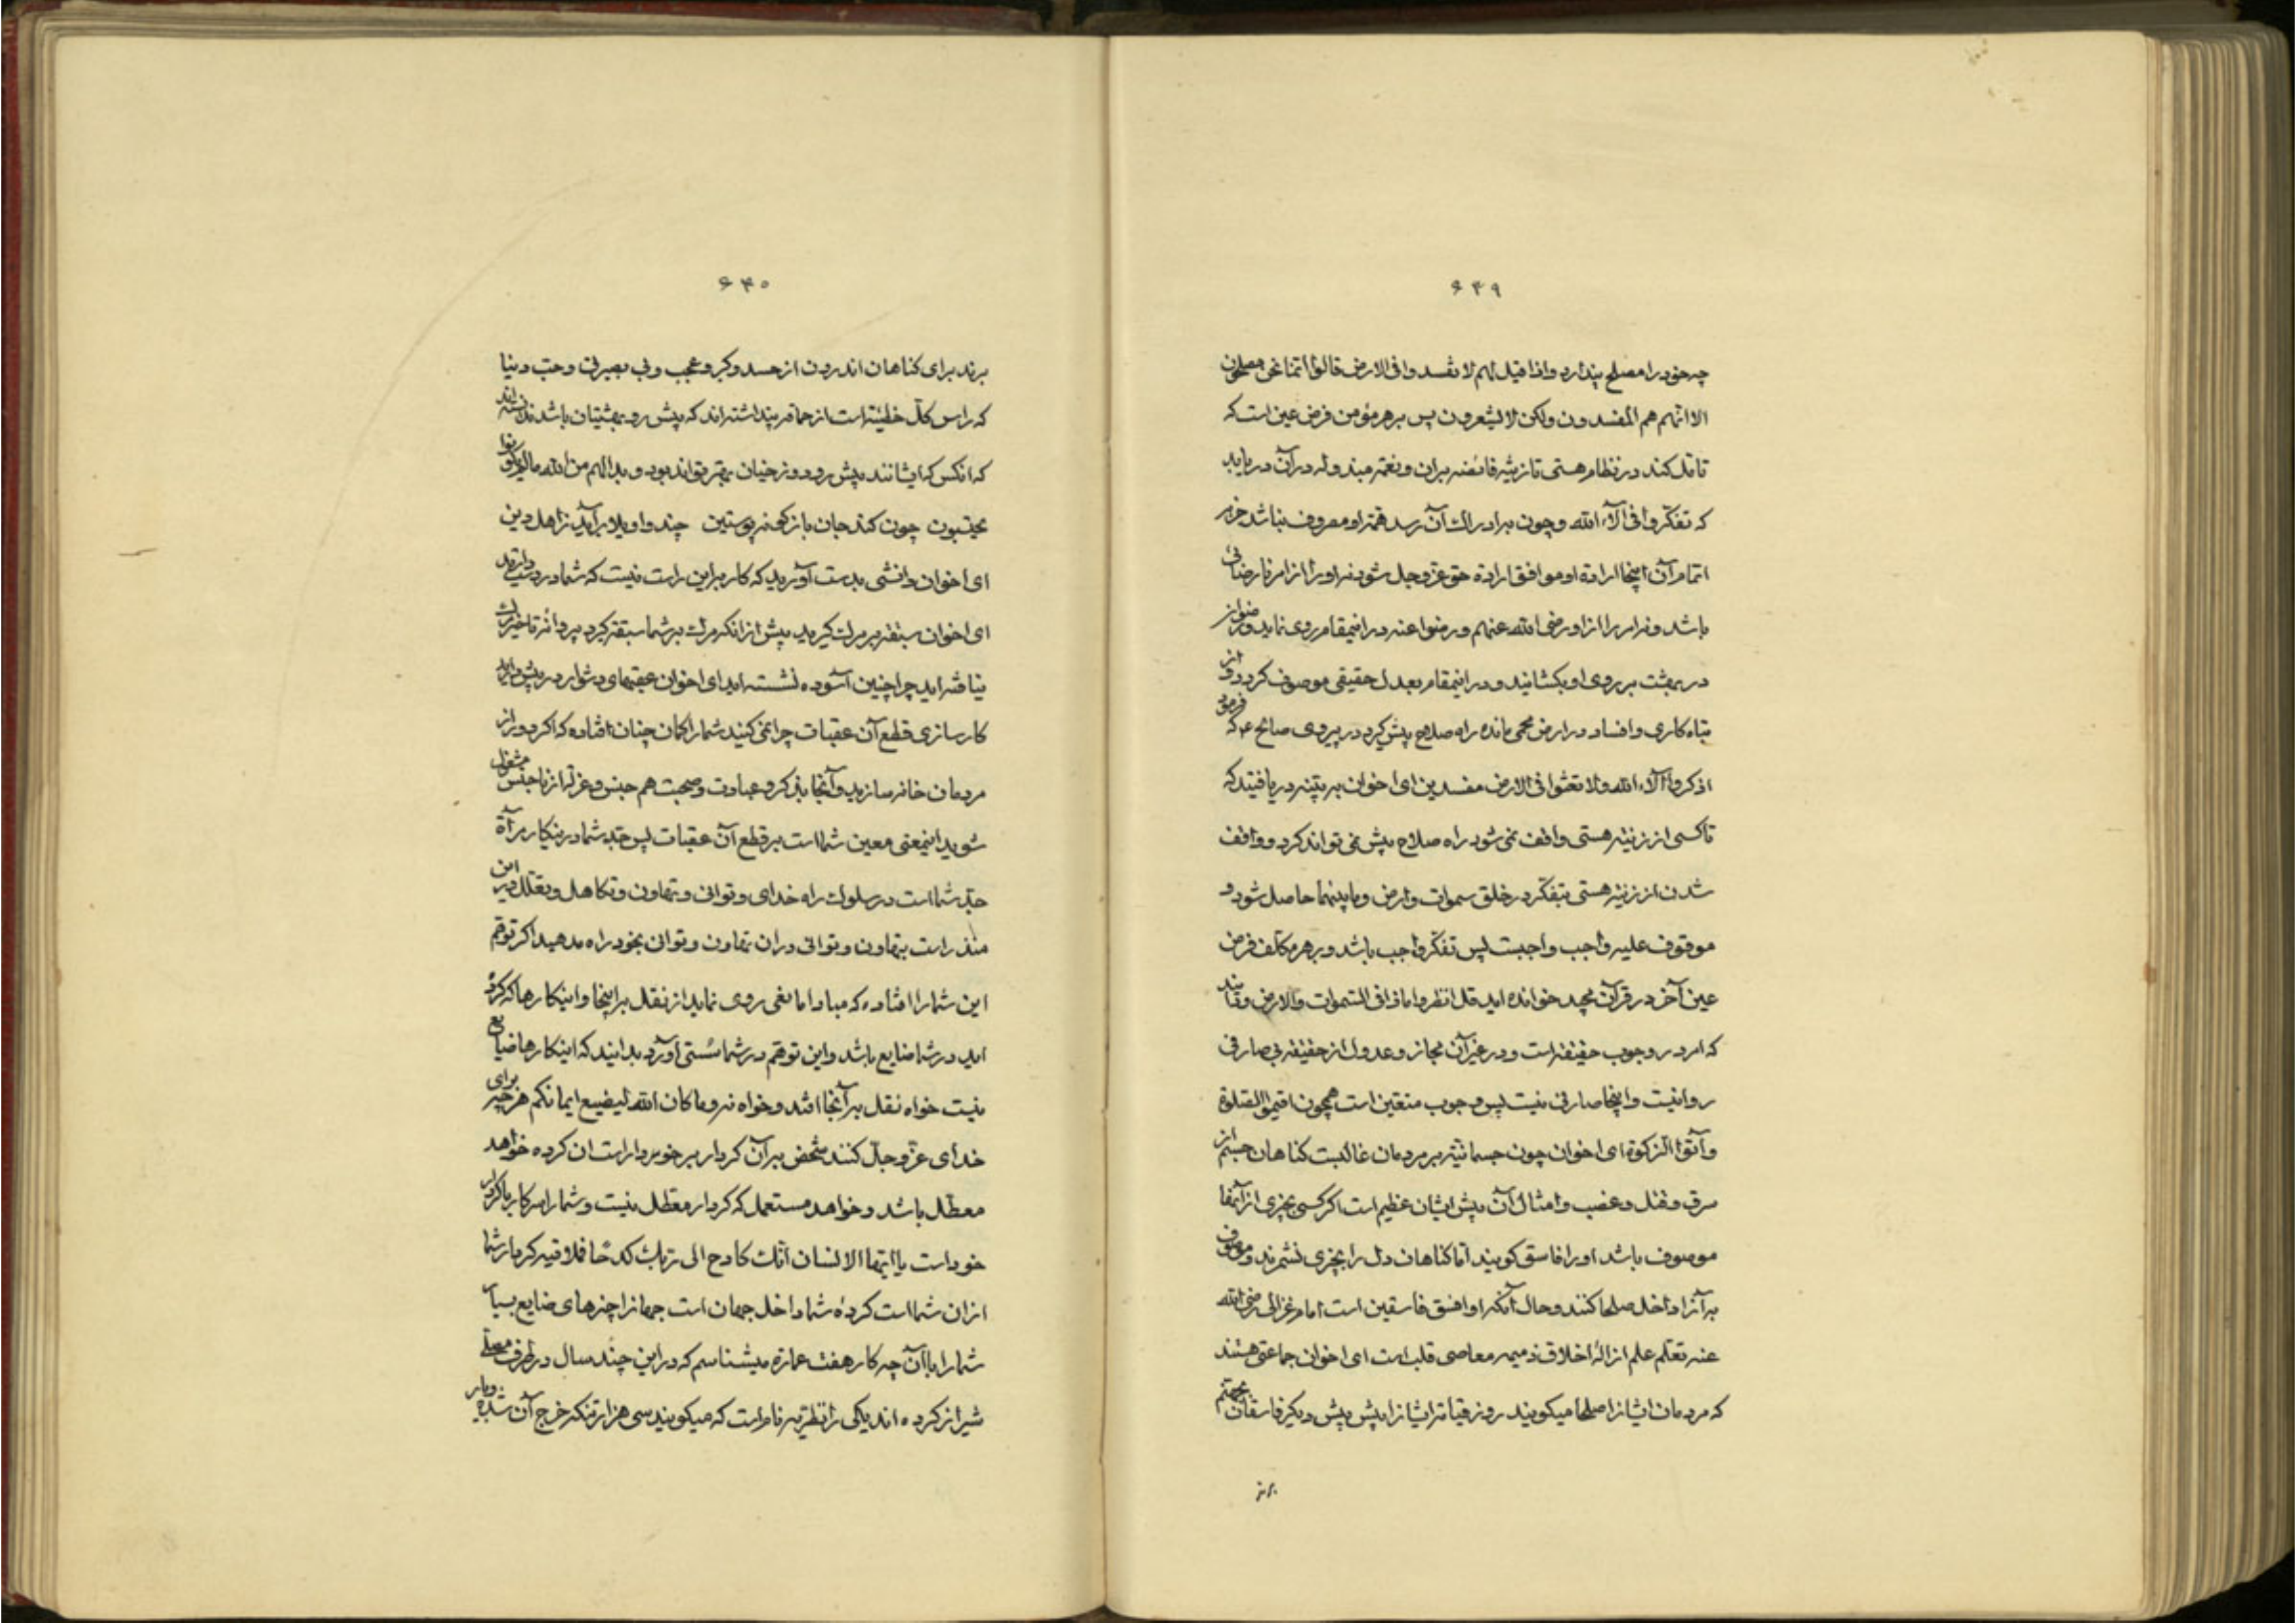 ۶۴۹
چه خود را مصلح پندارد واذا قیل لهم لا تفسدوا فی الارض قالوا انما نحن مصلحون
الا انهم هم المفسدون ولکن لا یشعرون پس بر هر مؤمن فرض عین است که
تامل کند در نظام هستی تا زینه فائضه بران و نعمه مبذوله در آن دریابد
که تفکروا فی آلاء الله و چون بدراک آن رسد همتراو مصروف نباشد جز بر
اتمام آن اینجا ارادة او موافق ارادة حق عز وجل شود نه او را از امر نارضائی
باشد و نه امر را از او رضی الله عنهم ورضوا عنه در اینمقام روی نماید و رضوان
در بهشت بر روی او بکشایند و در اینمقام بعدل حقیقی موصوف کردد و از
تباه کاری و افساد در ارض محمی مانده راه صلاح پیش کیرد در پیروی صالح ع که فرمود
اذکروا آلاء الله ولا تعثوا فی الارض مفسدین ای اخوان بر بینه دریافتید که
تا کسی از زینه هستی واقف نمی شود راه صلاح پیش نمی تواند کرد و واقف
شدن از زینه هستی بتفکر در خلق سموات وارض وما بینهما حاصل شود و
موقوف علیه واجب واجبست پس تفکر واجب باشد و بر هر مکلف فرض
عین آخر در قرآن مجید خوانده اید قل انظروا ماذا فی السموات والارض و
که امر در وجوب حقیقه است و در غیر آن مجاز و عدول از حقیقه بی صارفی
روا نیست و اینجا صارفی نیست پس وجوب متعین است همچون اقیموا الصلوة
وآتوا الزکوة ای اخوان چون جسمانیة بر مردمان غالبست کناهان جسم از
سرق و قتل و غضب و امثال آن پیش ایشان عظیم است اکر کسی بچیزی از آنها
موصوف باشد او را فاسق کویند اما کناهان دل را بچیزی نشمرند و موصوف
بر آنرا داخل صلحا کنند و حال آنکه او افسق فاسقین است امام غزالی رضی الله
عنه تعلم علم ازالهٔ اخلاق ذمیمه معاصی قلب است ای اخوان جماعتی هستند
که مردمان ایشانرا صلحا میکویند روز قیامة ایشانرا پیش پیش دیکر فاسقان بجهنم
برند
۶۴۰
برند برای کناهان اندرون از حسد و کبر و عجب و بی بصیرتی و حب دنیا
که راس کل خطیئه است از حماقة پنداشته اند که پیش رو بهشتیان باشند ندانسته اند
که انکس که ایشانند پیش رو دوزخیان بهتر تواند بود و بدا لهم من الله ما لم یکونوا
یحتسبون چون کند جان باز کونه پوستین چند واویلا برآید ز اهل دین
ای اخوان دانشی بدست آورید که کار بر این راست نیست که شما در دست دارید
ای اخوان سبقة بر مرك کیرید پیش از انکه مرك بر شما سبقة کیرد پروانهٔ تاخیر مرك
نیافته اید چرا چنین آسوده نشسته اید ای اخوان عقبهای دشوار در پیش دارید
کارسازی قطع آن عقبات چرا نمی کنید شما را کمان چنان افتاده که اکر دور از
مردمان خانه سازید و آنجا بذکر و عبادت و صحبت هم جنس و عزلة از ناجنس مشغول
شوید اینمعنی معین شما است بر قطع آن عقبات پس جد شما در اینکار مرآة
جد شما است در سلوك راه خدای و توانی و تهاون و تکاهل و تعلل در این
منذر است بتهاون و توانی در ان تهاون و توانی بخود راه مدهید اکر توهم
این شما را افتاده که مبادا مانعی روی نماید از نقل بر اینجا و اینکارها که کرده
اید در شما ضایع باشد و این توهم در شما سستی آورد بدانید که اینکارها ضایع
نیست خواه نقل بر آنجا افتد و خواه نه وما کان الله لیضیع ایمانکم هر چیز برای
خدای عز وجل کنند شخص بر آن کردار برخوردار است ان کرده خواهد
معطل باشد و خواهد مستعمل که کردار معطل نیست و شما را سر کار با کردار
خود است یا ایها الانسان انك کادح الی ربك کدحا فملاقیه کردار شما
از ان شما است کردهٔ شما داخل جهان است جهانرا چیزهای ضایع بسیار
شما را با آن چه کار هفت عمارة میشناسم که در این چند سال در طرف
شیراز کرده اند یکی را نام است که میکویند سی هزار تنکه خرج آن شده